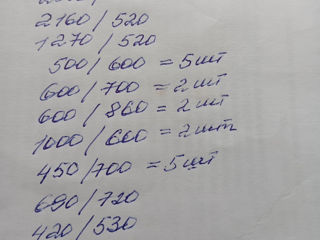 2160/520
1270/520
500/600 = 5шт
600/700 = 2шт
600/860 = 2шт
1000/660 = 2шт
450/700 = 5шт
690/720
420/530